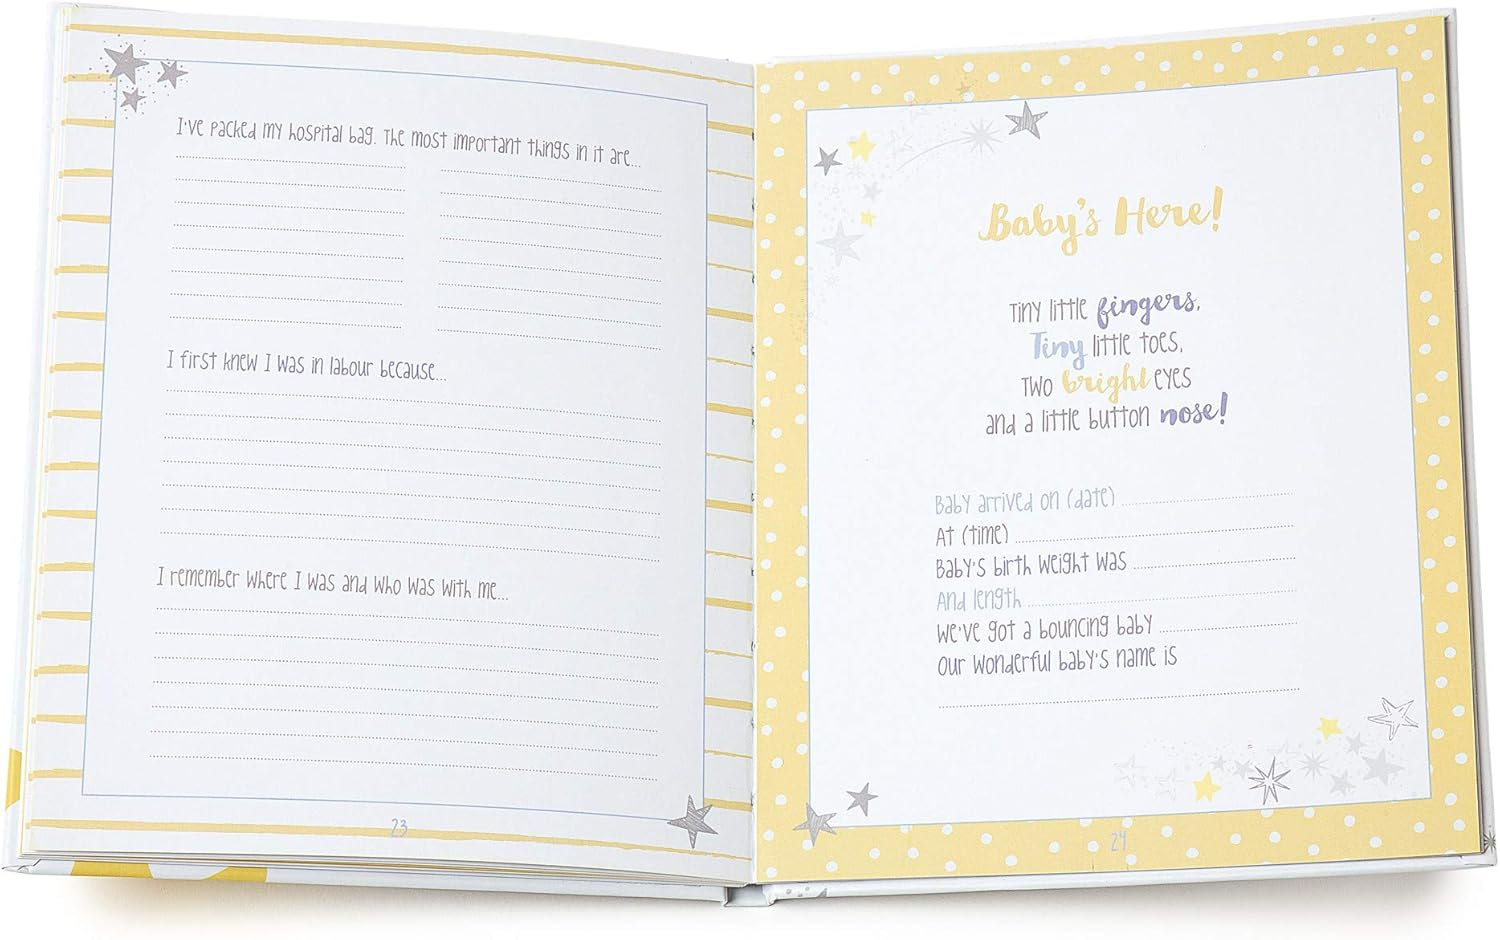 I've packed my hospital bag. The most important things in it are...
I first knew I was in labour because...
I remember where I was and who was with me...
23
Baby's Here!
Tiny little fingers,
Tiny little toes,
Two bright eyes
and a little button nose!
Baby arrived on (date)
At (time)
Baby's birth weight was
And length
We've got a bouncing baby
Our wonderful baby's name is
24